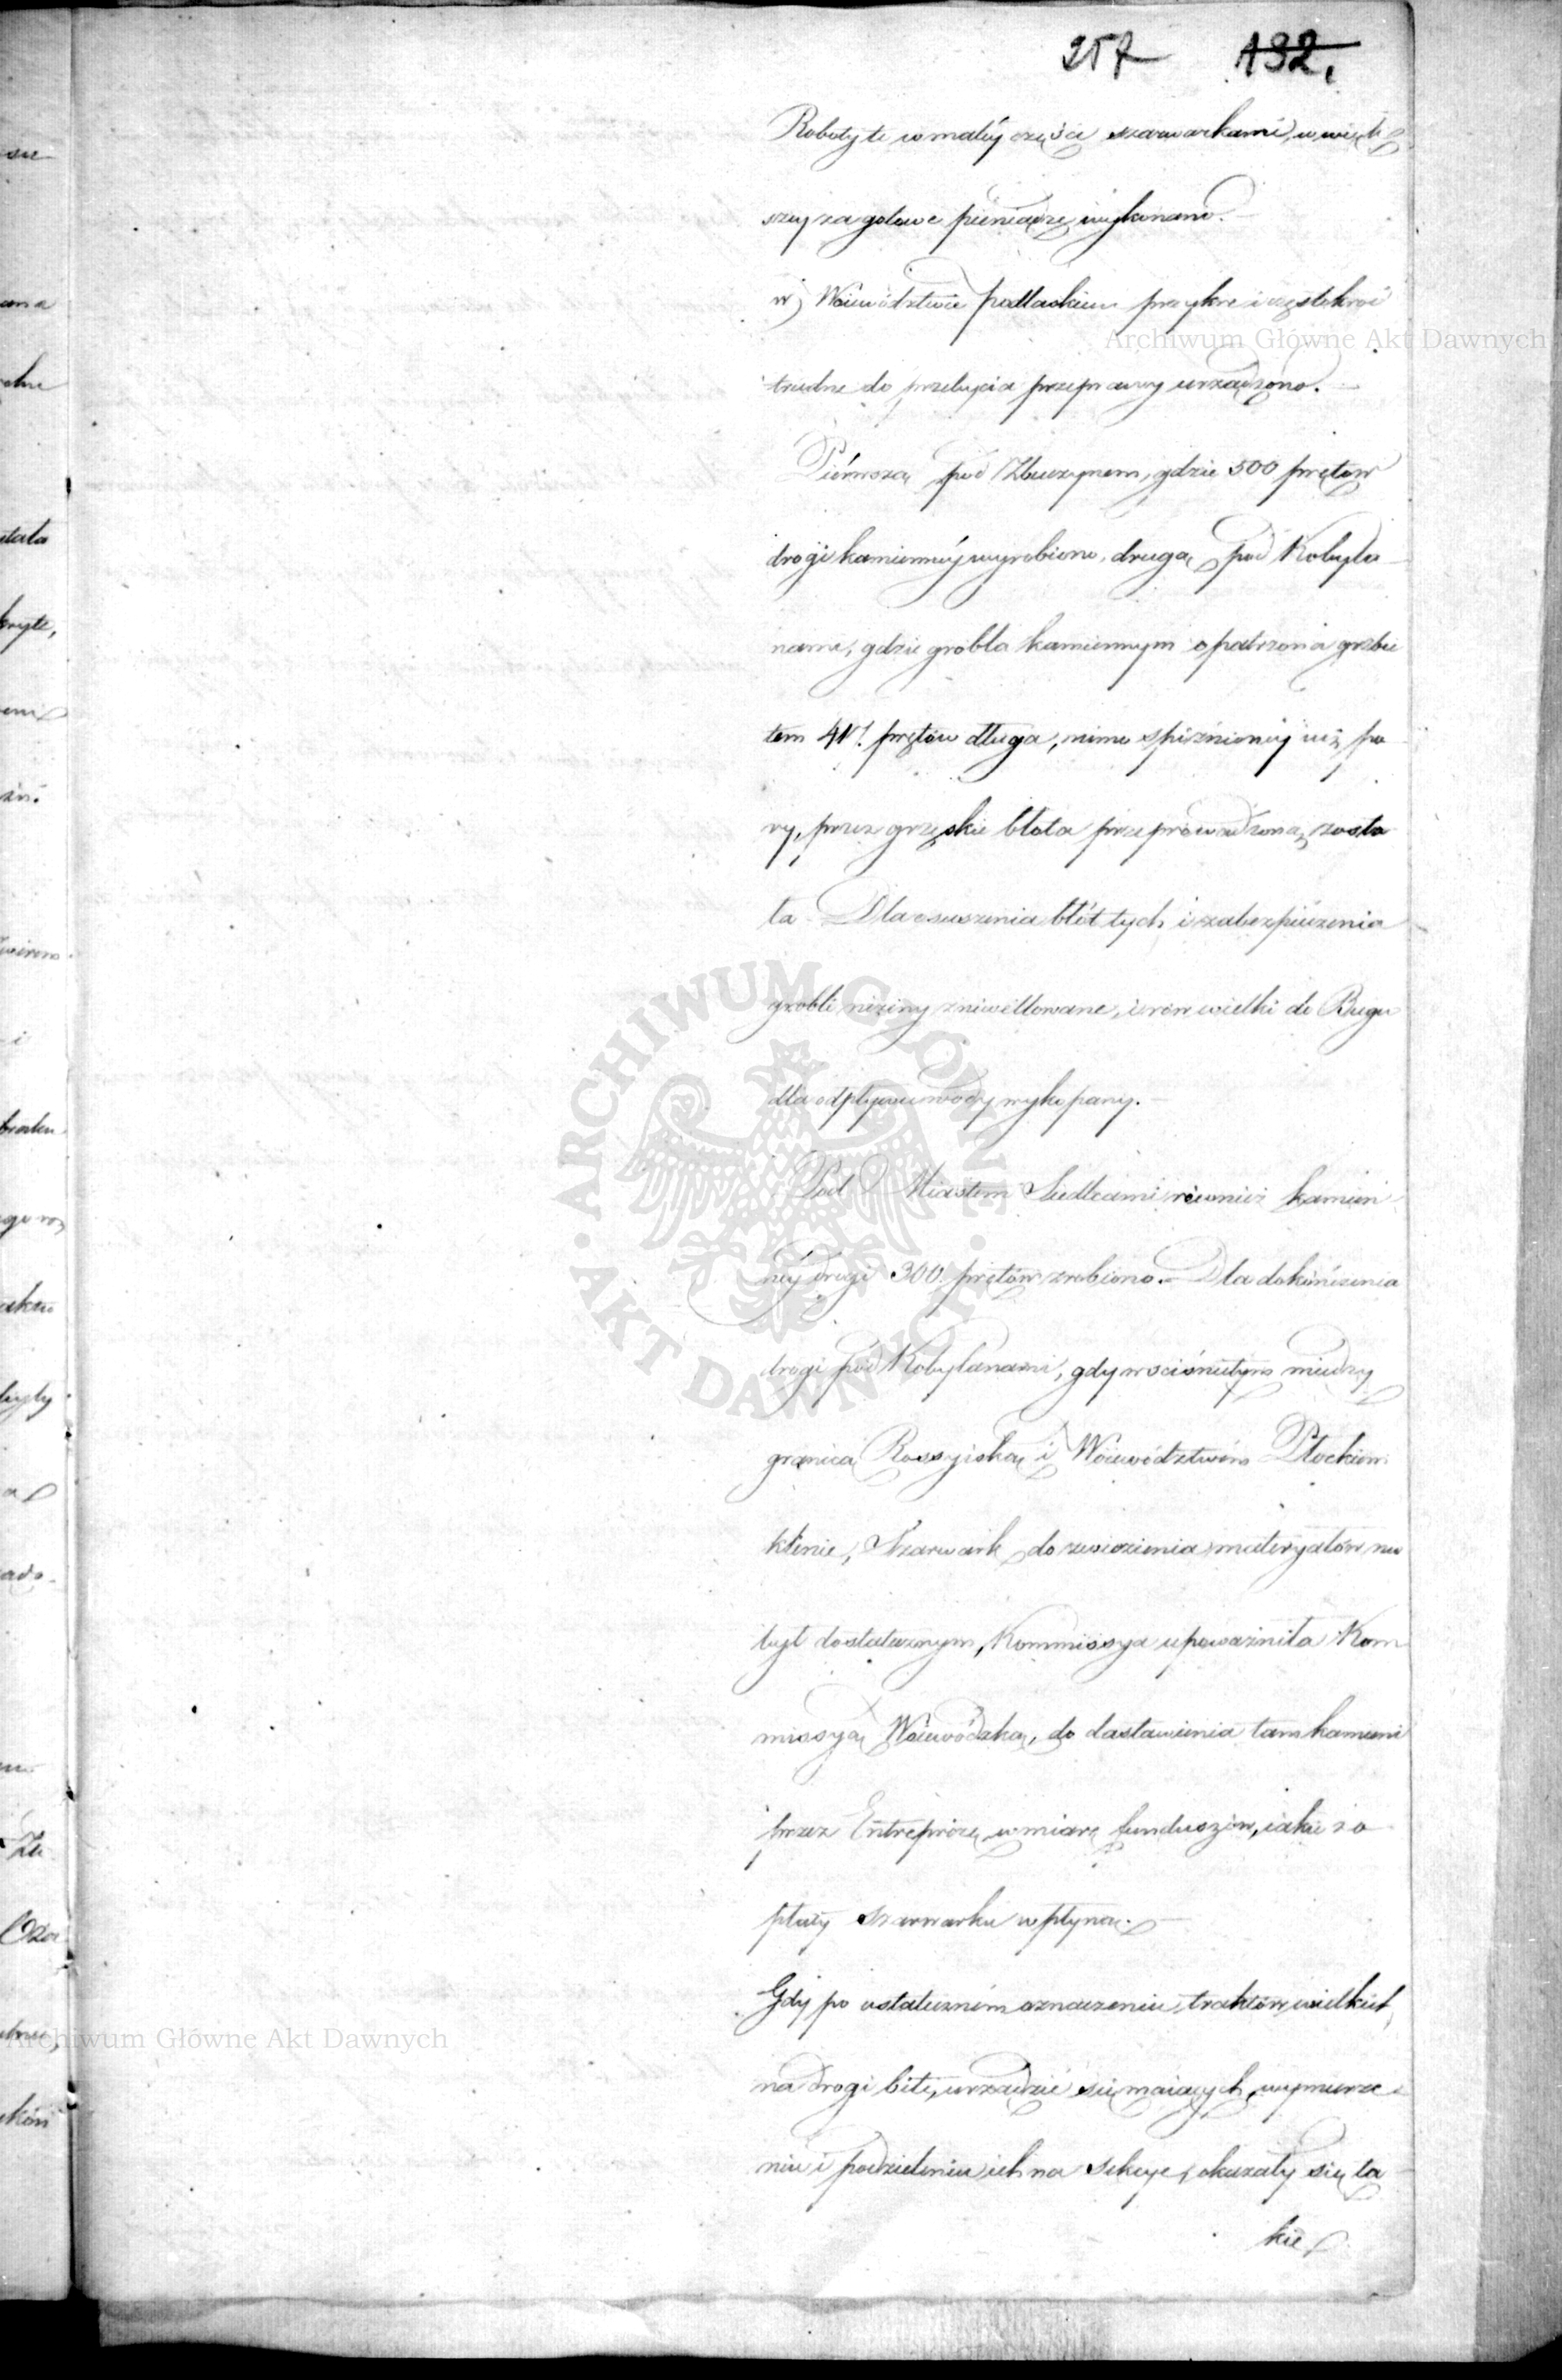 257 192.
Roboty te w małéy części szarwarkami, w więk
széy za gotowe pieniądze wykonano.
w) Woiewództwie podlaskiem przykre i częstokroć
Archiwum Główne Akt Dawnych
trudne do przebycia przeprawy urządzono. –
Piérwszą pod Zbuczynem, gdzie 500 prętów
drogi kamiennéy wyrobiono, drugą pod Kobyla
nami, gdzie grobla kamiennym opatrzona grzbie
tem prętów długa, mimo spóźnionéy iuż po
ry, przez grzęskie błota przeprowadzoną zosta
ła. Dla osuszenia błót tych i zabezpieczenia
grobli niziny zniwellowane, i rów wielki do Bugu
dla odpływu wody wykopany. –
Pod Miastem Siedlcami również kamien
néy drogi 300. prętów zrobiono. – Dla dokończenia
drogi pod Kobylanami, gdy w ściśniętym miedzy
granicą Rossyiską i Woiewództwem Płockiem
klinie, Szarwark do zwiezienia materyałów nie
był dostatecznym, Kommissya upoważniła Kom
missyą Woiewódzką, do dostawienia tam kamieni
przez Entrepryzę w miarę funduszów, iakie z o
płaty szarwarku wpłyną. –
Gdy po ostateczném oznaczeniu traktów wielkich,
na drogi bite, urządzić się maiących, wymierze
Archiwum Główne Akt Dawnych
niu i podzieleniu ich na Sekcye, okazały się ta
kie
ARCHIWUM GŁÓWNE • AKT DAWNYCH •